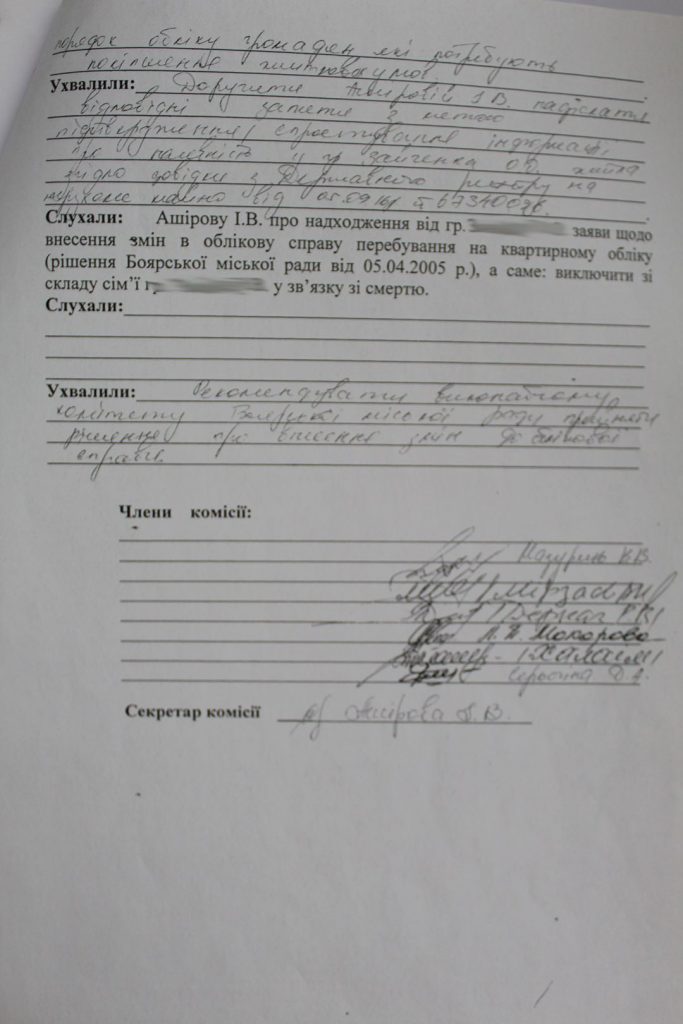 порядок обліку громадян які потребують
поліпшення житлових умов.
Ухвалили: Доручити Ашіровій І.В. надіслати
відповідні запити з метою
підтвердження, спростування інформації
про наявність у гр. Зайченка О.О. житла
згідно довідки з Державного реєстру на
нерухоме майно від
Слухали: Ашірову І.В. про надходження від гр. заяви щодо
внесення змін в облікову справу перебування на квартирному обліку
(рішення Боярської міської ради від 05.04.2005 р.), а саме: виключити зі
складу сім’ї г у зв’язку зі смертю.
Слухали:
Ухвалили: Рекомендувати виконавчому
комітету Боярської міської ради прийняти
рішення про внесення змін до облікової
справи.
Члени комісії:
Мазурин
Мірзо
Дернач
Мокорово
Халаім
Д.А.
Секретар комісії Ашірова І.В.